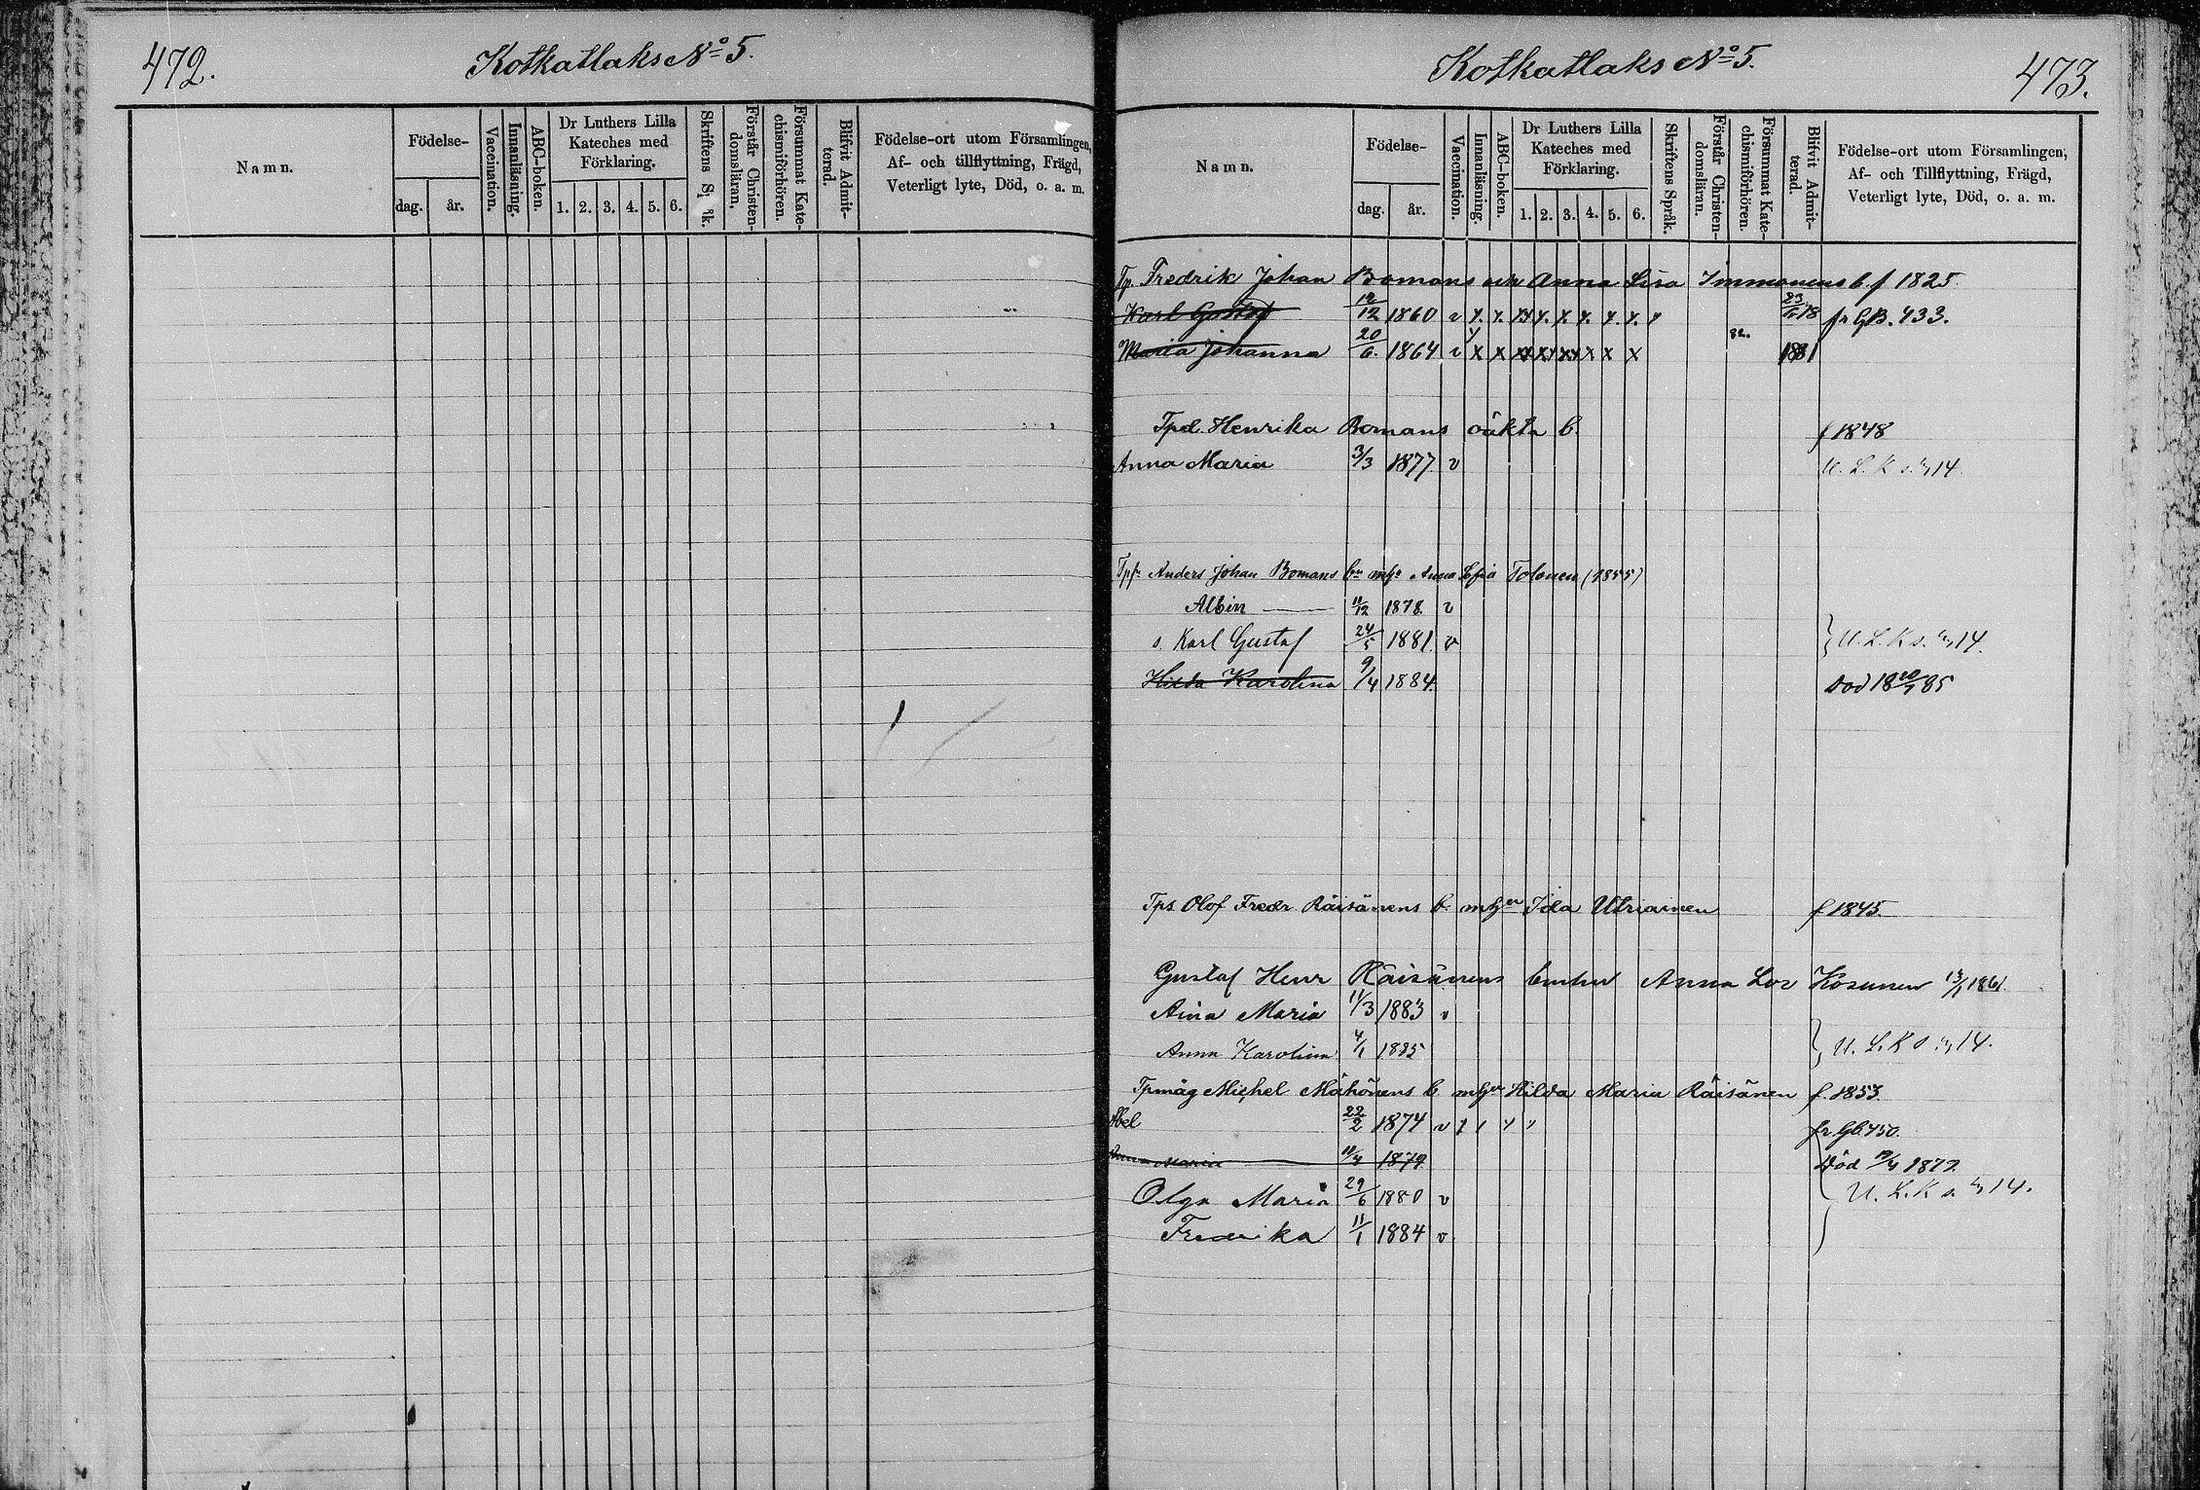 472.
Kotkatlaks No 5.
Namn.
Födelse-
dag.
år.
Vaccination.
Innanläsning.
ABC-boken.
Dr Luthers Lilla
Kateches med
Förklaring.
1. 2. 3. 4. 5. 6.
Skriftens
Förstår Christen-
domsläran.
Försummat Kate-
chismiförhören.
Blifvit Admit-
terad.
Födelse-ort utom Församlingen,
Af- och tillflyttning, Frägd,
Veterligt lyte, Död, o. a. m.
Kotkatlaks No 5.
473.
Namn.
Födelse-
dag.
år.
Vaccination.
Innanläsning.
ABC-boken.
Dr Luthers Lilla
Kateches med
Förklaring.
1. 2. 3. 4. 5. 6.
Skriftens Språk.
Förstår Christen-
domsläran.
Försummat Kate-
chismiförhören.
Blifvit Admit-
terad.
Födelse-ort utom Församlingen,
Af- och Tillflyttning, Frägd,
Veterligt lyte, Död, o. a. m.
Tp. Fredrik Johan Bomans och Anna Lisa Immonens b. f 1825.
Karl Gustaf 12 1860 v fr GB. 433.
Maria Johanna 20/6. 1864 v x x x x x 1881
Tpd. Henrika Bomans oäkta b. f 1848
Anna Maria 3/3 1877 v U. L. K s. 14.
Anders Johan Bomans Anna Tolonen (1855)
Albin 11/12 1878. v
s. Karl Gustaf 24/5 1881 v U. L. K s. 14.
Hilda Karolina 9/4 1884. Död 18 85
Tps. Olof Fredr Räisänens b. Ida Utriainen f 1845.
Gustaf Henr Räisänens Anna Kosunen 1861.
Aina Maria 11/3 1883 v
Anna Karolina 4/1 1885 U. L. K s. 14.
Tpmåg Michel Mähönens b. Hilda Maria Räisänen f. 1853.
Abel 22/2 1874 v fr. Gb. 450.
Anna Maria 1879 Död 1879.
Olga Maria 29/6 1880 v U. L. K s. 14.
Fredrika 11/1 1884 v